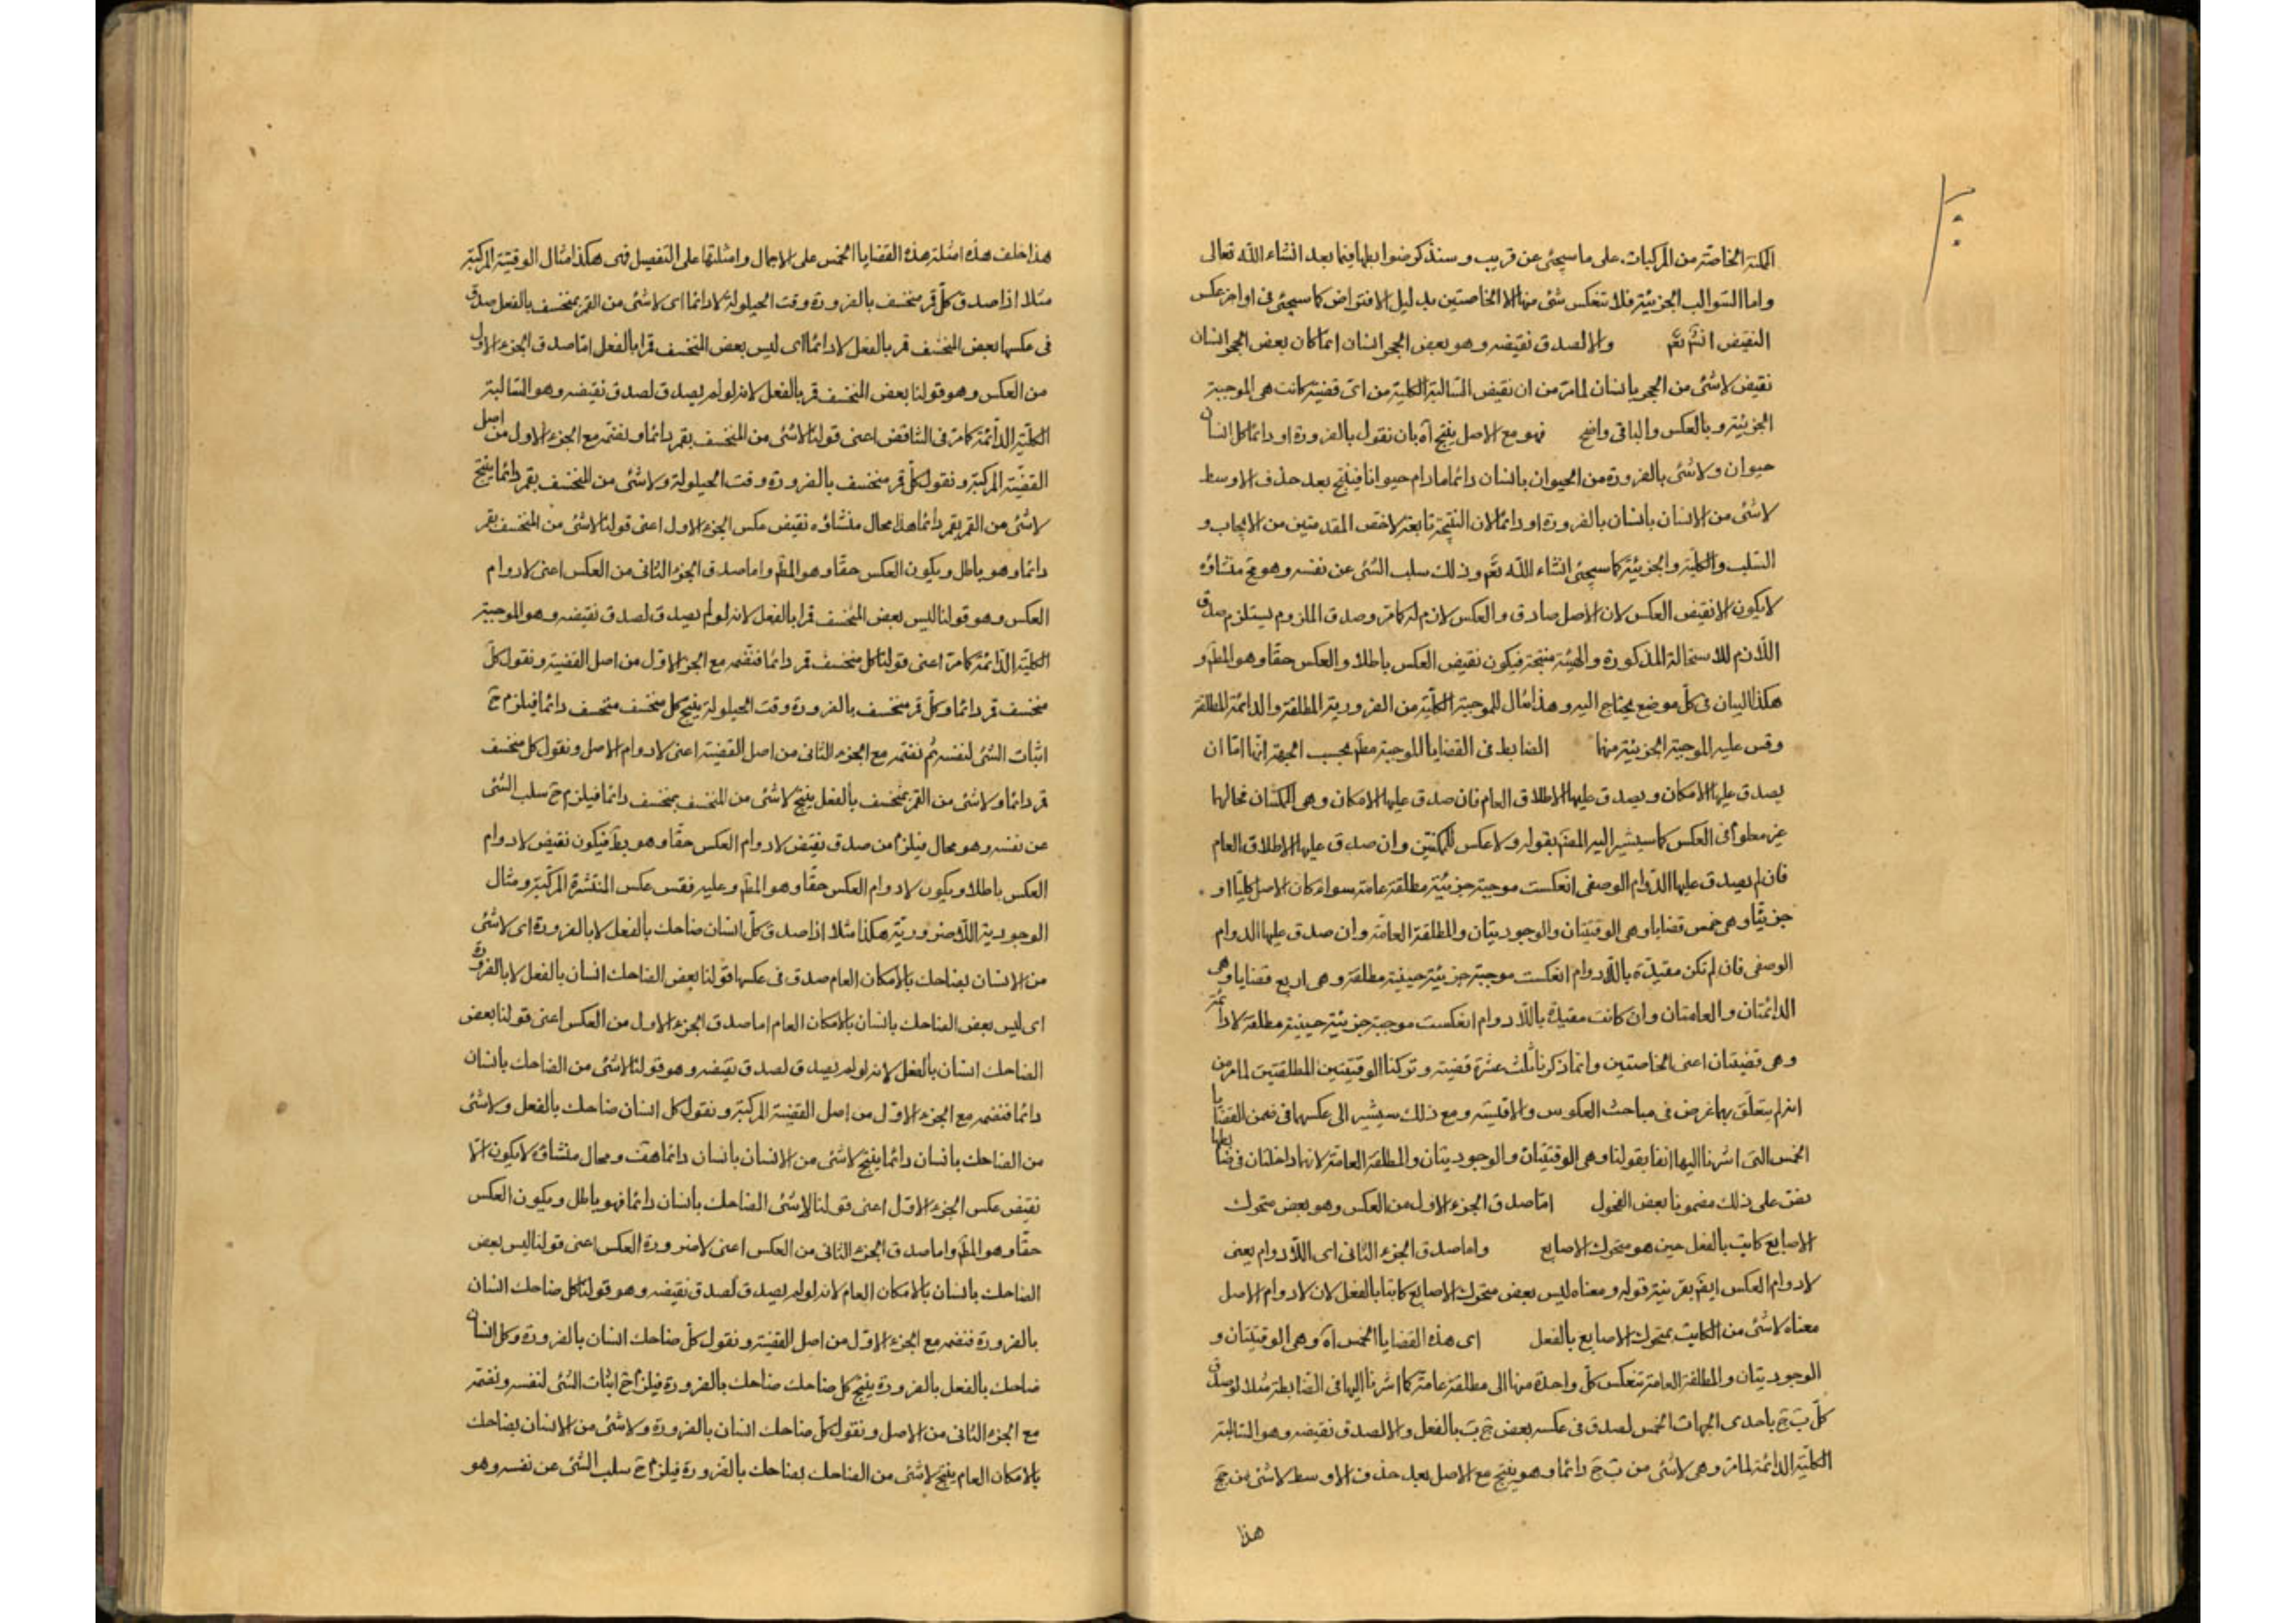 الممكنة الخاصة من المركبات على ما سيجئ عن قريب و سنذكر ضوابطها فيما بعد انشاء الله تعالى
واما السوالب الجزئية فلا تنعكس شئ منها الا الخاصتين بدليل الافتراض كما سيجئ فى اواخر عكس
النقيض انشم تعم والا لصدق نقيضه وهو بعض الحجر انسان انما كان بعض الحجر انسان
نقيض لاشئ من الحجر بانسان لما مر من ان نقيض السالبة الكلية من اى قضية كانت هى الموجبة
الجزئية و بالعكس والباقى واضح فهو مع الاصل ينتج آه بان نقول بالضرورة او دائما كل انسان
حيوان ولاشئ بالضرورة من الحيوان بانسان دائما مادام حيوانا فينتج بعد حذف الاوسط
لاشئ من الانسان بانسان بالضرورة او دائما لان النتيجة تابعة لاخص المقدمتين من الايجاب و
السلب والكلية والجزئية كما سيجئ انشاء الله تعم وذلك سلب الشئ عن نفسه وهو مح منشاؤه
لايكون الا نقيض العكس لان الاصل صادق والعكس لازم له كما مر وصدق الملزوم يستلزم صدق
اللازم للاستحالة المذكورة والهيئة منتجة فيكون نقيض العكس باطلا والعكس حقا وهو المطم و
هكذا البيان فى كل موضع يحتاج اليه وهذا مثال للموجبة الكلية من الضرورية المطلقة والدائمة المطلقة
وقس عليه الموجبة الجزئية منها الضابط فى القضايا الموجبة مطم بحسب الجهة انها اما ان
يصدق عليها الامكان و يصدق عليها الاطلاق العام فان صدق عليها الامكان وهى الممكنتان فحالها
غير معلوم فى العكس كما سيشير اليه المصنم بقوله ولا عكس للممكنتين وان صدق عليها الاطلاق العام
فان لم يصدق عليها الدوام الوصفى انعكست موجبة جزئية مطلقة عامة سواء كان الاصل كليا او
جزئيا وهى خمس قضايا وهى الوقتيتان والوجوديتان والمطلقة العامة وان صدق عليها الدوام
الوصفى فان لم تكن مقيدة باللادوام انعكست موجبة جزئية حينية مطلقة وهى اربع قضايا وهى
الدائمتان والعامتان وان كانت مقيدة باللادوام انعكست موجبة جزئية حينية مطلقة لادائمة
وهى قضيتان اعنى الخاصتين وانما ذكرنا ثلث عشرة قضية و تركنا الوقتيتين المطلقتين لما مر من
انه لم يتعلق بهما غرض فى مباحث العكوس والاقيسة و مع ذلك سيشير الى عكسهما فى ضمن القضايا
الخمس التى اشرنا اليها انفا بقولنا وهى الوقتيتان والوجوديتان والمطلقة العامة لانهما داخلتان فى ضابطها
نص على ذلك مضمونا بعض الفحول اما صدق الجزء الاول من العكس وهو بعض متحرك
الاصابع كاتب بالفعل حين هو متحرك الاصابع واما صدق الجزء الثانى اى اللادوام يعنى
لادوام العكس ايضم بقرينة قوله و معناه ليس بعض متحرك الاصابع كاتبا بالفعل لان لادوام الاصل
معناه لاشئ من الكاتب بمتحرك الاصابع بالفعل اى هذه القضايا الخمس آه وهى الوقتيتان و
الوجوديتان والمطلقة العامة تنعكس كل واحدة منها الى مطلقة عامة كما اشرنا اليها فى الضابطة مثلا لو صدق
كل ب ج باحدى الجهات الخمس لصدق فى عكسه بعض ج ب بالفعل والا لصدق نقيضه وهو السالبة
الكلية الدائمة لما مر وهى لاشئ من ب ج دائما وهو ينتج مع الاصل بعد حذف الاوسط لاشئ من ج ج
هذا
هذا خلف هذه امثلة هذه القضايا الخمس على الاجمال وامثلتها على التفصيل فهى هكذا مثال الوقتية المركبة
مثلا اذا صدق كل قمر منخسف بالضرورة وقت الحيلولة لادائما اى لاشئ من القمر بمنخسف بالفعل صدق
فى عكسها بعض المنخسف قمر بالفعل لادائما اى ليس بعض المنخسف قمرا بالفعل اما صدق الجزء الاول
من العكس وهو قولنا بعض المنخسف قمر بالفعل لانه لو لم يصدق لصدق نقيضه وهو السالبة
الكلية الدائمة كما مر فى التناقض اعنى قولنا لاشئ من المنخسف بقمر دائما و نضمه مع الجزء الاول من اصل
القضية المركبة و نقول كل قمر منخسف بالضرورة وقت الحيلولة ولاشئ من المنخسف بقمر دائما ينتج
لاشئ من القمر بقمر دائما هذا محال منشاؤه نقيض عكس الجزء الاول اعنى قولنا لاشئ من المنخسف بقمر
دائما وهو باطل ويكون العكس حقا وهو المطم واما صدق الجزء الثانى من العكس اعنى لادوام
العكس وهو قولنا ليس بعض المنخسف قمرا بالفعل لانه لو لم يصدق لصدق نقيضه وهو الموجبة
الكلية الدائمة كما مر اعنى قولنا كل منخسف قمر دائما فنضمه مع الجزء الاول من اصل القضية و نقول كل
منخسف قمر دائما وكل قمر منخسف بالضرورة وقت الحيلولة ينتج كل منخسف منخسف دائما فيلزم ح
اثبات الشئ لنفسه ثم نضمه مع الجزء الثانى من اصل القضية اعنى لادوام الاصل و نقول كل منخسف
قمر دائما ولاشئ من القمر بمنخسف بالفعل ينتج لاشئ من المنخسف بمنخسف دائما فيلزم ح سلب الشئ
عن نفسه وهو محال فيلزم من صدق نقيض لادوام العكس حقا وهو بط فيكون نقيض لادوام
العكس باطلا ويكون لادوام العكس حقا وهو المطم وعليه فقس عكس المنتشرة المركبة و مثال
الوجودية اللاضرورية هكذا مثلا اذا صدق كل انسان ضاحك بالفعل لا بالضرورة اى لاشئ
من الانسان بضاحك بالامكان العام صدق فى عكسها قولنا بعض الضاحك انسان بالفعل لا بالضرورة
اى ليس بعض الضاحك بانسان بالامكان العام اما صدق الجزء الاول من العكس اعنى قولنا بعض
الضاحك انسان بالفعل لانه لو لم يصدق لصدق نقيضه وهو قولنا لاشئ من الضاحك بانسان
دائما فنضمه مع الجزء الاول من اصل القضية المركبة و نقول كل انسان ضاحك بالفعل ولاشئ
من الضاحك بانسان دائما ينتج لاشئ من الانسان بانسان دائما هف و محال منشاؤه لايكون الا
نقيض عكس الجزء الاول اعنى قولنا لاشئ الضاحك بانسان دائما فهو باطل ويكون العكس
حقا وهو المطم واما صدق الجزء الثانى من العكس اعنى لاضرورة العكس اعنى قولنا ليس بعض
الضاحك بانسان بالامكان العام لانه لو لم يصدق لصدق نقيضه وهو قولنا كل ضاحك انسان
بالضرورة فنضمه مع الجزء الاول من اصل القضية و نقول كل ضاحك انسان بالضرورة وكل انسان
ضاحك بالفعل بالضرورة ينتج كل ضاحك ضاحك بالضرورة فيلزم ح اثبات الشئ لنفسه و نضمه
مع الجزء الثانى من الاصل و نقول كل ضاحك انسان بالضرورة ولاشئ من الانسان بضاحك
بالامكان العام ينتج لاشئ من الضاحك بضاحك بالضرورة فيلزم ح سلب الشئ عن نفسه وهو